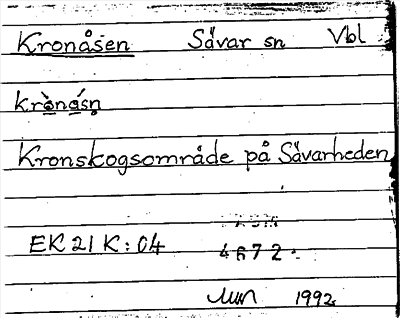 Kronåsen Sävar sn Vbl
krònásn
Kronskogsområde på Sävarheden
EK 21 K:04
4672
1992